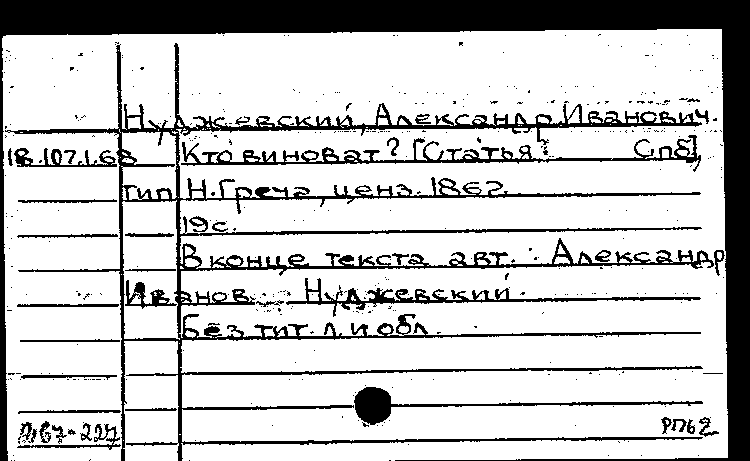 Нуджевский, Александр Иванович.
18.107.1.68 Кто виноват? [Статья. Спб],
тип. Н. Греча, ценз. 1862.
19 с.
В конце текста авт.: Александр
Иванов. Нуджевский.
Без тит. л. и обл.